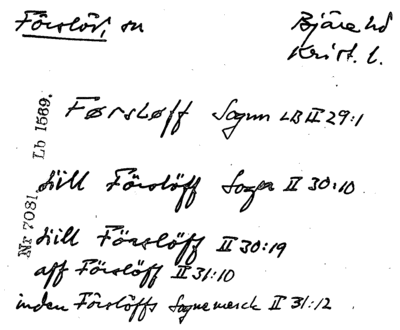 Förslöv, sn
Bjäre hd
Krist. l.
Nr 7081 Lb 1569.
Førsløff Sognn LB II 29:1
till Förslöff Sogn II 30:10
till Förslöff II 30:19
aff Förslöff II 31:10
inden Förslöffs Sognemerck II 31:12